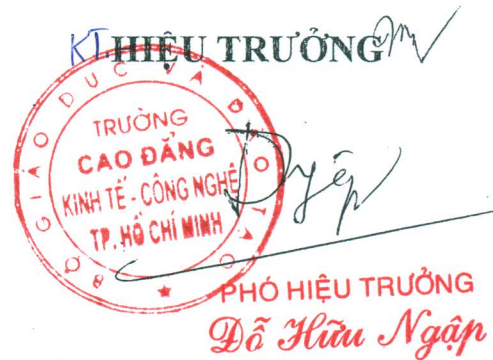 KT. HIỆU TRƯỞNG
BỘ GIÁO DỤC VÀ ĐÀO TẠO
TRƯỜNG
CAO ĐẲNG
KINH TẾ - CÔNG NGHỆ
TP. HỒ CHÍ MINH
PHÓ HIỆU TRƯỞNG
Đỗ Hữu Ngập